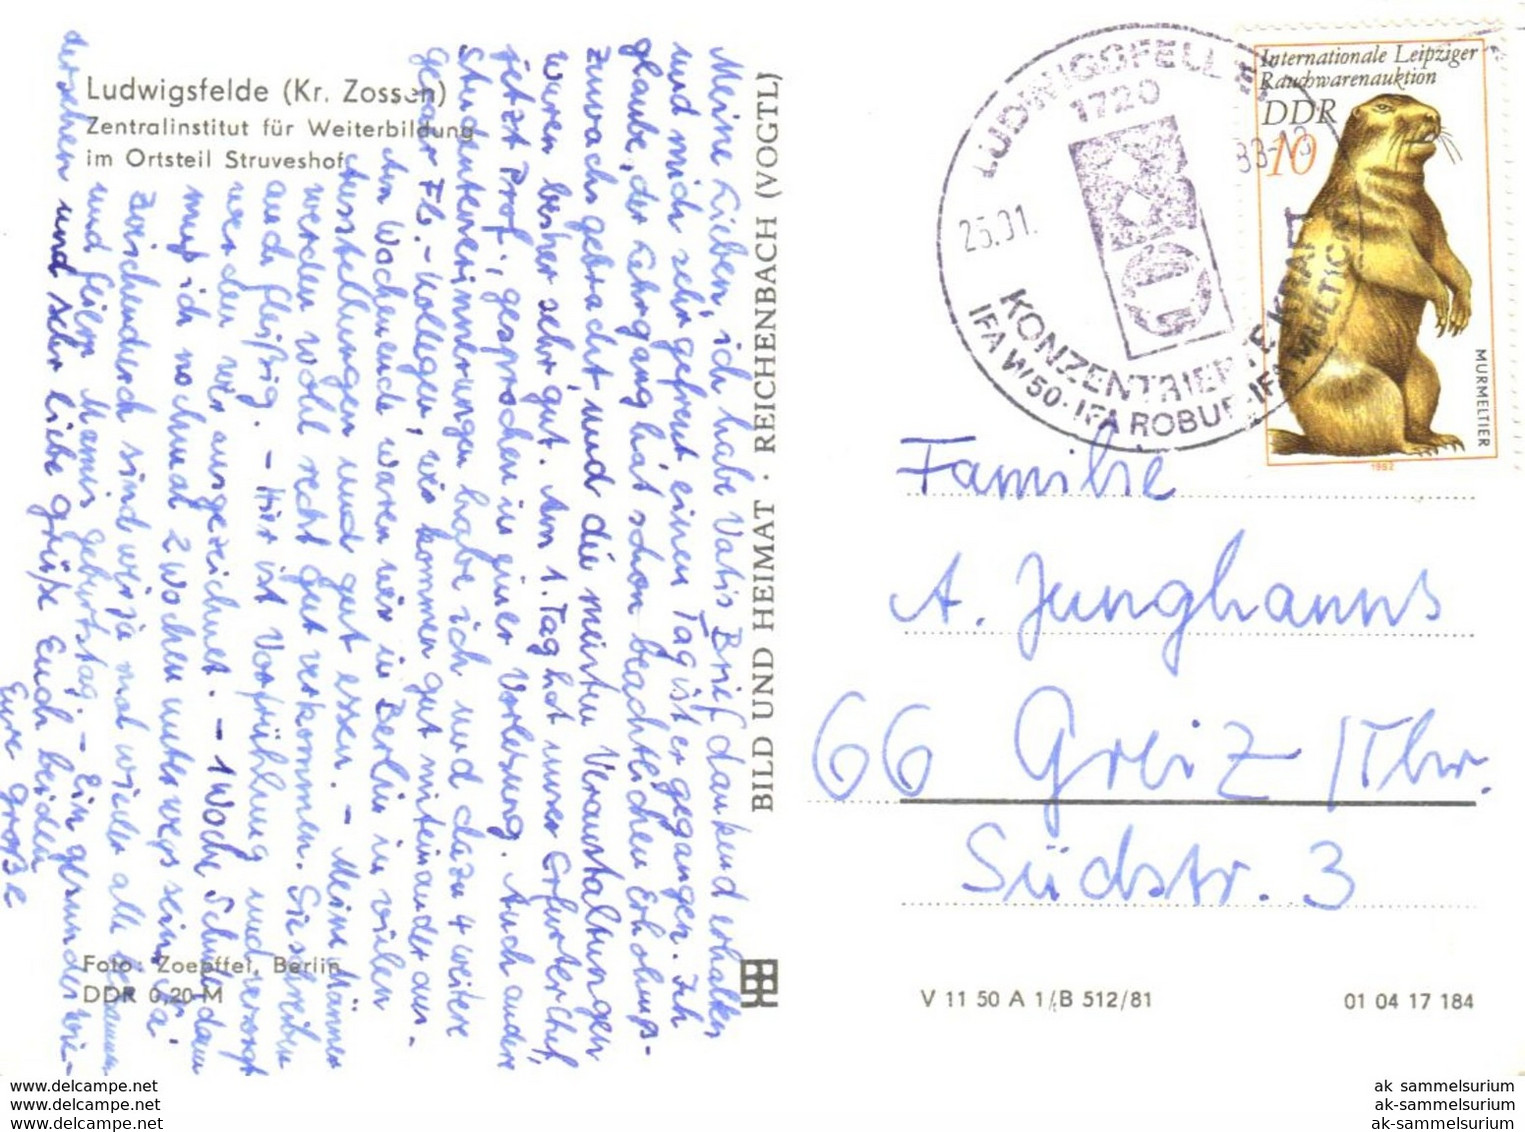 Ludwigsfelde (Kr. Zossen)
Zentralinstitut für Weiterbildung
im Ortsteil Struveshof
Meine Lieben, ich habe Vatis Brief dankend erhalten
und mich sehr gefreut einen Tag ist er gegangen. Ich
glaube, der Lehrgang hat schon beachtlichen Erholungs-
zuwachs gebracht, und die meisten Veranstaltungen
waren bisher sehr gut. Am 1. Tag hat unser Erfurter Chef,
jetzt Prof., gesprochen in guter Vorlesung. Auch andere
Studentenerinnerungen habe ich und dazu 4 weitere
Geraer Fb.-Kollegen, wir kommen gut miteinander aus.
Am Wochenende waren wir in Berlin in vielen
Ausstellungen und gut essen. – Meine Männer
werden wohl recht gut verkommen. Sie schreiben
auch fleißig. – Hier ist Vorfrühling und versorgt
werden wir ausgezeichnet. – 1 Woche Schule, dann
muß ich nochmal 2 Wochen unterwegs sein. Na
zwischendurch sind wir ja mal wieder alle beisammen
und feiern Mamis Geburtstag. – Ein gesundes Wie-
dersehen und sehr liebe Grüße Euch beiden
Eure Große
Foto: Zoepffel, Berlin
DDR 0,20 M
BILD UND HEIMAT · REICHENBACH (VOGTL)
LUDWIGSFELDE
1720
25.01.
83-13
KONZENTRIERTE KRAFT
IFA W50 · IFA ROBUR · IFA MULTICAR
Internationale Leipziger
Rauchwarenauktion
DDR
10
MURMELTIER
1982
Familie
A. Junghanns
66 Greiz/Thür.
Südstr. 3
V 11 50 A 1/B 512/81
01 04 17 184
www.delcampe.net
www.delcampe.net
www.delcampe.net
ak_sammelsurium
ak-sammelsurium
ak-sammelsurium